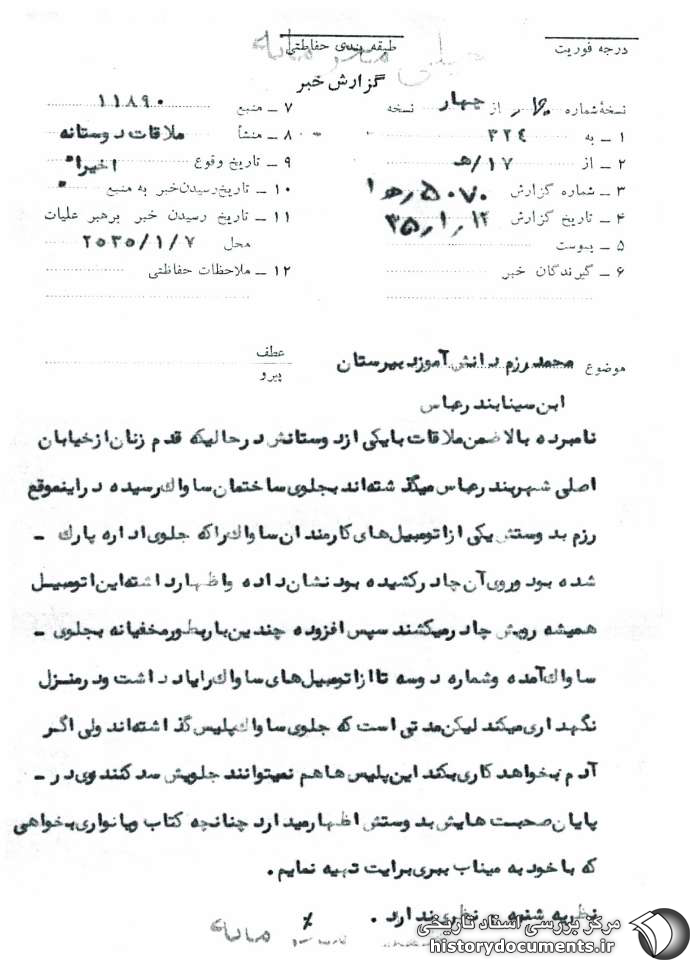 درجه فوریت
طبقه بندی حفاظتی
خیلی محرمانه
گزارش خبر
نسخهٔ شماره از چهار نسخه
۱ ـ به ۳۲۴
۲ ـ از ۱۷/هـ
۳ ـ شماره گزارش ۵۰۷۰/هـ۱
۴ ـ تاریخ گزارش ۳۵/۱/۱۲
۵ ـ پیوست
۶ ـ گیرندگان خبر
۷ ـ منبع ۱۱۸۹۰
۸ ـ منشأ ملاقات دوستانه
۹ ـ تاریخ وقوع اخیرا"
۱۰ ـ تاریخ رسیدن خبر به منبع "
۱۱ ـ تاریخ رسیدن خبر برهبر عملیات
محل ۲۵۳۵/۱/۷
۱۲ ـ ملاحظات حفاظتی
موضوع محمد رزم دانش آموز دبیرستان
ابن سینا بندرعباس
عطف
پیرو
نامبرده بالا ضمن ملاقات با یکی از دوستانش درحالیکه قدم زنان از خیابان
اصلی شهر بندرعباس میگذشته‌اند بجلوی ساختمان ساواک رسیده دراینموقع
رزم بدوستش یکی از اتومبیل‌های کارمندان ساواک را که جلوی اداره پارک ـ
شده بود وروی آن چادر کشیده بود نشان داده واظهار داشته این اتومبیل
همیشه رویش چادر میکشند سپس افزوده چندین بار بطور مخفیانه بجلوی ـ
ساواک آمده وشماره دوسه تا از اتومبیل‌های ساواک را یادداشت ودرمنزل
نگهداری میکند لیکن مدتی است که جلوی ساواک پلیس گذاشته‌اند ولی اگر
آدم بخواهد کاری بکند این پلیس ها هم نمیتوانند جلویش سد کنند وی در ـ
پایان صحبت هایش بدوستش اظهار میدارد چنانچه کتاب ویا نواری بخواهی
که با خود به میناب ببری برایت تهیه نمایم .
نظریه شنبه ـ نظری ندارد .
مرکز بررسی اسناد تاریخی
historydocuments.ir